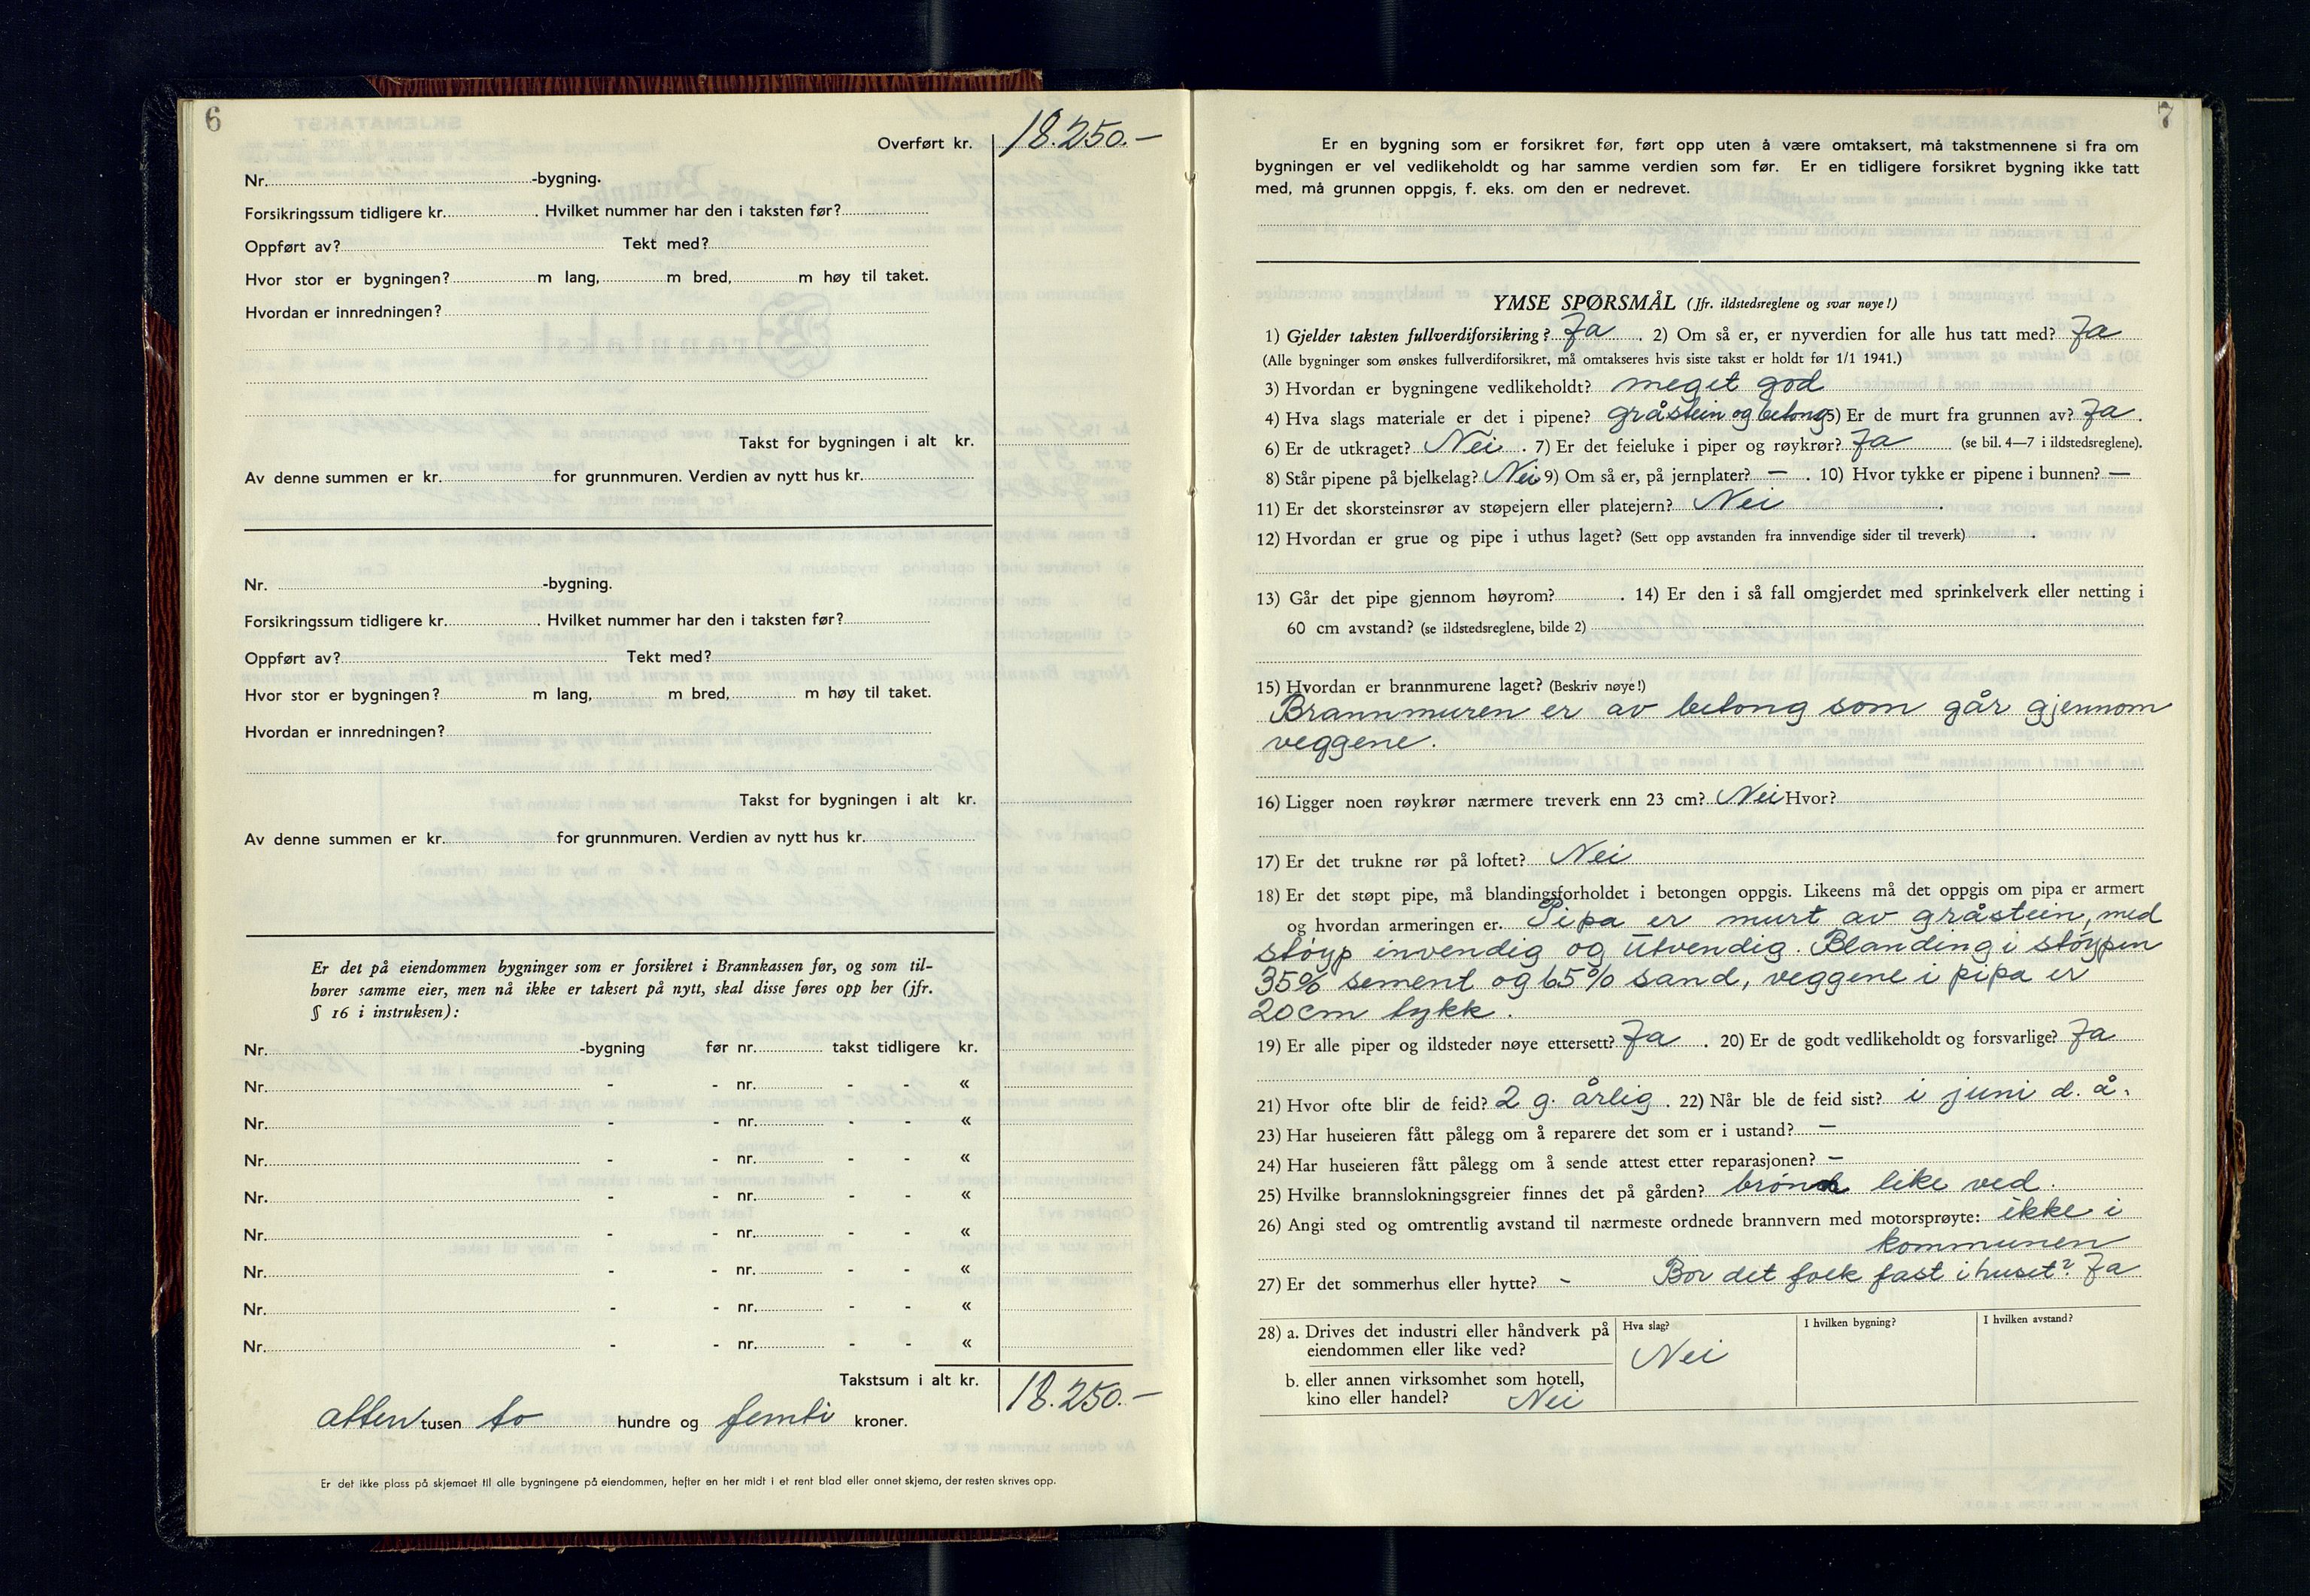 6
Overført kr. 18.250.—
Nr. -bygning.
Forsikringssum tidligere kr. . Hvilket nummer har den i taksten før?
Oppført av? Tekt med?
Hvor stor er bygningen? m lang, m bred, m høy til taket.
Hvordan er innredningen?
Takst for bygningen i alt kr.
Av denne summen er kr. for grunnmuren. Verdien av nytt hus kr.
Nr. -bygning.
Forsikringssum tidligere kr. . Hvilket nummer har den i taksten før?
Oppført av? Tekt med?
Hvor stor er bygningen? m lang, m bred, m høy til taket.
Hvordan er innredningen?
Takst for bygningen i alt kr.
Av denne summen er kr. for grunnmuren. Verdien av nytt hus kr.
Er det på eiendommen bygninger som er forsikret i Brannkassen før, og som til-
hører samme eier, men nå ikke er taksert på nytt, skal disse føres opp her (jfr.
§ 16 i instruksen):
Nr. -bygning før nr. takst tidligere kr.
Nr. - - nr. - - «
Nr. - - nr. - - «
Nr. - - nr. - - «
Nr. - - nr. - - «
Nr. - - nr. - - «
Nr. - - nr. - - «
Nr. - - nr. - - «
Nr. - - nr. - - «
Takstsum i alt kr. 18.250.—
atten tusen to hundre og femti kroner.
Er det ikke plass på skjemaet til alle bygningene på eiendommen, hefter en her midt i et rent blad eller annet skjema, der resten skrives opp.
7
Er en bygning som er forsikret før, ført opp uten å være omtaksert, må takstmennene si fra om
bygningen er vel vedlikeholdt og har samme verdien som før. Er en tidligere forsikret bygning ikke tatt
med, må grunnen oppgis, f. eks. om den er nedrevet.
YMSE SPØRSMÅL (Jfr. ildstedsreglene og svar nøye!)
1) Gjelder taksten fullverdiforsikring? Ja . 2) Om så er, er nyverdien for alle hus tatt med? Ja
(Alle bygninger som ønskes fullverdiforsikret, må omtakseres hvis siste takst er holdt før 1/1 1941.)
3) Hvordan er bygningene vedlikeholdt? meget god
4) Hva slags materiale er det i pipene? gråstein og betong 5) Er de murt fra grunnen av? Ja .
6) Er de utkraget? Nei . 7) Er det feieluke i piper og røykrør? Ja (se bil. 4—7 i ildstedsreglene).
8) Står pipene på bjelkelag? Nei 9) Om så er, på jernplater? — . 10) Hvor tykke er pipene i bunnen? —
11) Er det skorsteinsrør av støpejern eller platejern? Nei .
12) Hvordan er grue og pipe i uthus laget? (Sett opp avstanden fra innvendige sider til treverk) .
13) Går det pipe gjennom høyrom? . 14) Er den i så fall omgjerdet med sprinkelverk eller netting i
60 cm avstand? (se ildstedsreglene, bilde 2)
15) Hvordan er brannmurene laget? (Beskriv nøye!)
Brannmuren er av betong som går gjennom
veggene.
16) Ligger noen røykrør nærmere treverk enn 23 cm? Nei Hvor?
17) Er det trukne rør på loftet? Nei
18) Er det støpt pipe, må blandingsforholdet i betongen oppgis. Likeens må det oppgis om pipa er armert
og hvordan armeringen er. Pipa er murt av gråstein, med
støyp invendig og utvendig. Blanding i støypen
35% sement og 65% sand, veggene i pipa er
20cm tykk.
19) Er alle piper og ildsteder nøye ettersett? Ja . 20) Er de godt vedlikeholdt og forsvarlige? Ja
21) Hvor ofte blir de feid? 2 g. årlig . 22) Når ble de feid sist? i juni d. å.
23) Har huseieren fått pålegg om å reparere det som er i ustand? —
24) Har huseieren fått pålegg om å sende attest etter reparasjonen? —
25) Hvilke brannslokningsgreier finnes det på gården? brønn like ved.
26) Angi sted og omtrentlig avstand til nærmeste ordnede brannvern med motorsprøyte: ikke i
kommunen
27) Er det sommerhus eller hytte? - Bor det folk fast i huset? Ja
28) a. Drives det industri eller håndverk på Hva slag? I hvilken bygning? I hvilken avstand?
eiendommen eller like ved? Nei
b. eller annen virksomhet som hotell,
kino eller handel? Nei